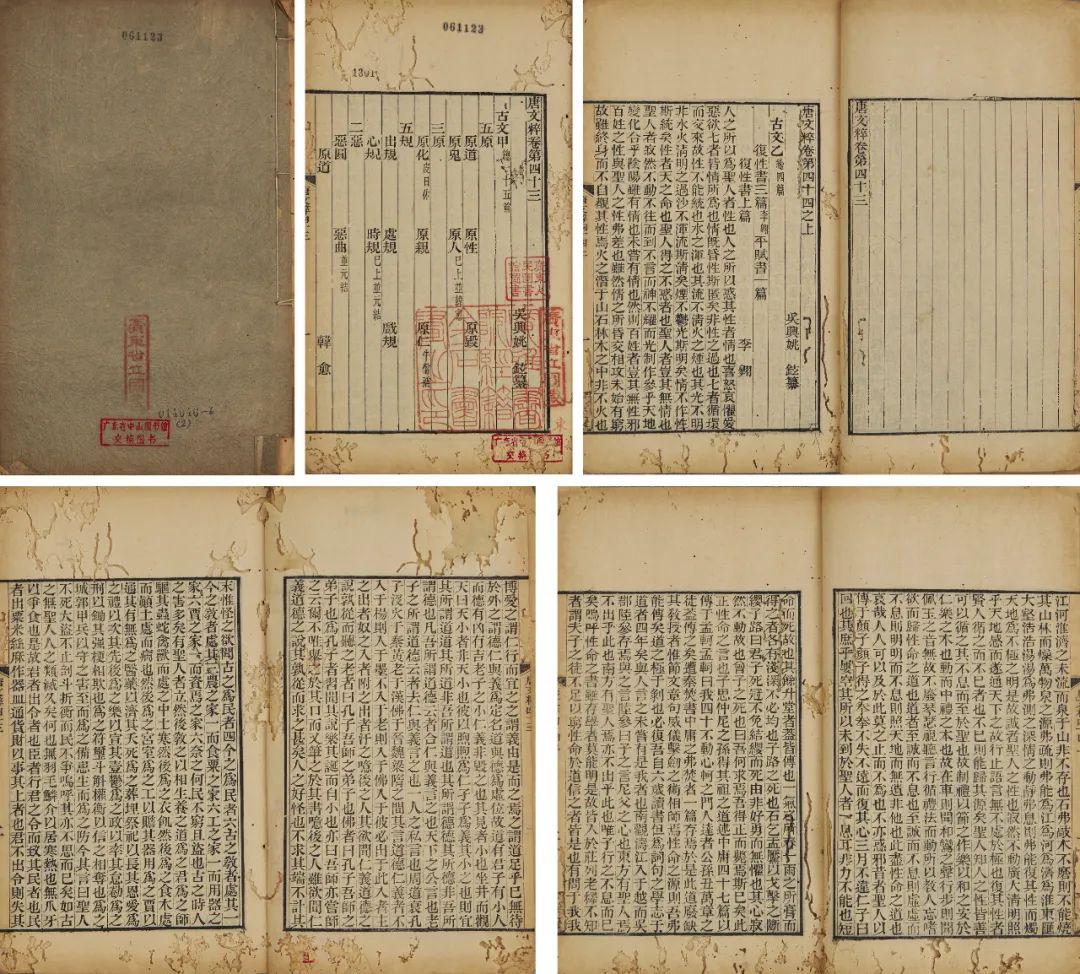 061123
廣東省立圖
014040-6
(2)
广东省中山图书馆
交换图书
061123
1301
唐文粹卷第四十三
吳興姚 鉉纂
古文甲 總二十五篇
五原
原道 原性 原毀
原鬼 原人 已上並韓愈
三原
原化 皮日休 原親 原仁 牛僧孺
五規
出規 處規 戲規
心規 時規 已上並元結
二惡
惡圓 惡曲 並元結
原道 韓愈
唐文粹卷第四十三
唐文粹卷第四十四之上
吳興姚 鉉纂
古文乙 總四篇
復性書三篇 李翺 平賦書一篇
復性書上篇 李翺
人之所以爲聖人者性也人之所以惑其性者情也喜怒哀懼愛
惡欲七者皆情所爲也情旣昏性斯匿矣非性之過也七者循環
而交來故性不能統也水之渾也其流不清火之煙也其光不明
非水火清明之過沙不渾流斯清矣煙不鬱光斯明矣情不作性
斯統矣性者天之命也聖人得之不惑者也聖人者豈其無情也
聖人者寂然不動不往而到不言而神不耀而光制作參乎天地
變化合乎陰陽雖有情也未嘗有情也然則百姓者豈其無性邪
百姓之性與聖人之性弗差也雖然情之所昏交相攻未始有窮
故雖終身而不自覩其性焉火之潛于山石林木之中非不火也
博愛之謂仁行而宜之之謂義由是而之焉之謂道足乎已無待
於外之謂德仁與義爲定名道與德爲虛位故道有君子有小人
而德有凶有吉老子之小仁義非毀之也其見者小也坐井而觀
天曰天小者非天小也彼以煦煦爲仁孑孑爲義其小之也則宜
其所謂道道其所道非吾所謂道也其所謂德德其所德非吾所
謂德也凡吾所謂道德云者合仁與義言之也天下之公言也老
子之所謂道德云者去仁與義言之也一人之私言也周道衰孔
子沒火于秦黃老于漢佛于晉魏梁隋之間其言道德仁義者不
入于楊則入于墨不入于老則入于佛入于彼必出于此入者主
之出者奴之入者附之出者汙之噫後之人其欲聞仁義道德之
說孰從而聽之老者曰孔子吾師之弟子也佛者曰孔子吾師之
弟子也爲孔子者習聞其說樂其誕而自小也亦曰吾師亦嘗師
之云爾不唯舉之於其口而又筆之於其書噫後之人雖欲聞仁
義道德之說其孰從而求之甚矣人之好怪也不求其端不訊其
末惟怪之欲聞古之爲民者四今之爲民者六古之教者處其一
今之教者處其三農之家一而食粟之家六工之家一而用器之
家六賈之家一而資焉之家六奈之何民不窮且盜也古之時人
之害多矣有聖人者立然後教之以相生養之道爲之君爲之師
驅其蟲蛇禽獸而處之中土寒然後爲之衣飢然後爲之食木處
而顛土處而病也然後爲之宮室爲之工以贍其器用爲之賈以
通其有無爲之醫藥以濟其夭死爲之葬埋祭祀以長其恩愛爲
之禮以次其先後爲之樂以宣其壹鬱爲之政以率其怠勌爲之
刑以鋤其强梗相欺也爲之符璽斗斛權衡以信之相奪也爲之
城郭甲兵以守之害至而爲之備患生而爲之防今其言曰聖人
不死大盜不止剖斗折衡而民不爭嗚呼其亦不思而已矣如古
之無聖人人之類滅久矣何也無羽毛鱗介以居寒熱也無爪牙
以爭食也是故君者出令者也臣者行君之令而致其民者也民
者出粟米絲麻作器皿通貨財以事其上者也君不出令則失其
江河淮濟之未流而泉于山非不存也石弗敲木不磨則不能燒
其山林而燥萬物泉之源弗疏則弗能爲江爲河爲濟爲淮東匯
大壑浩浩蕩蕩爲弗測之深情之動靜弗息則弗能復其性而燭
天地爲不極之明是故誠者聖人之性也寂然不動廣大清明照
乎天地感而遂通天下之故行止語默無不處於極也復其性者
賢人循之而不已者也不已則能歸其源矣聖人知人之性皆善
可以循之不息而至於聖也故制禮以節之作樂以和之安於
和樂樂之本也動而中禮禮之本也故在車則聞和鸞之聲行步則聞
佩玉之音無故不廢琴瑟視聽言行循禮法而動所以教人忘嗜
欲而歸性命之道也道者至誠也誠而不息則虛虛而
不息則明明而不息則照天地而無遺非他也此盡性命之道也
哀哉人人可以及於此莫之止而不爲也不亦惑邪昔者聖人以
傳于顔子顔子得之拳拳不失不遠而復其心三月不違仁子曰
回也其庶乎屢空其所以未到於聖人者一息耳非力不能也短
命而死故也其餘升堂者蓋皆傳也一氣之所養一雨之所膏而
得之者各有淺深不必均也子路之死也石乞孟黶以戈擊之斷
纓子路曰君子死冠不免結纓而死由非好勇而無懼也其心寂
然不動故也曾子之死也曰吾何求焉吾得正而斃焉斯已矣此
正性命之言也子思仲尼之孫得其祖之道述中庸四十七篇以
傳于孟軻孟軻曰我四十不動心軻之門人達者公孫丑萬章之
徒蓋傳之矣遭秦焚書中庸之弗焚者一篇存焉於是此道廢缺
其教授者唯節文章句威儀擊劒之術相師焉性命之源則吾弗
能傳矣道之極于剝也必復吾自六歲讀書但爲詞句之學志于
道者四年矣與人言之未嘗有是我者也南觀濤江入于越而吳
郡陸參存焉與之言之陸參曰子之言尼父之心也東方有聖人焉
不出乎此也南方有聖人焉亦不出乎此也唯子行之不息而已
矣嗚呼性命之書雖存學者莫能明是故皆入於莊列老釋不知
者謂夫子之徒不足以窮性命於道信之者皆是也有問于我我